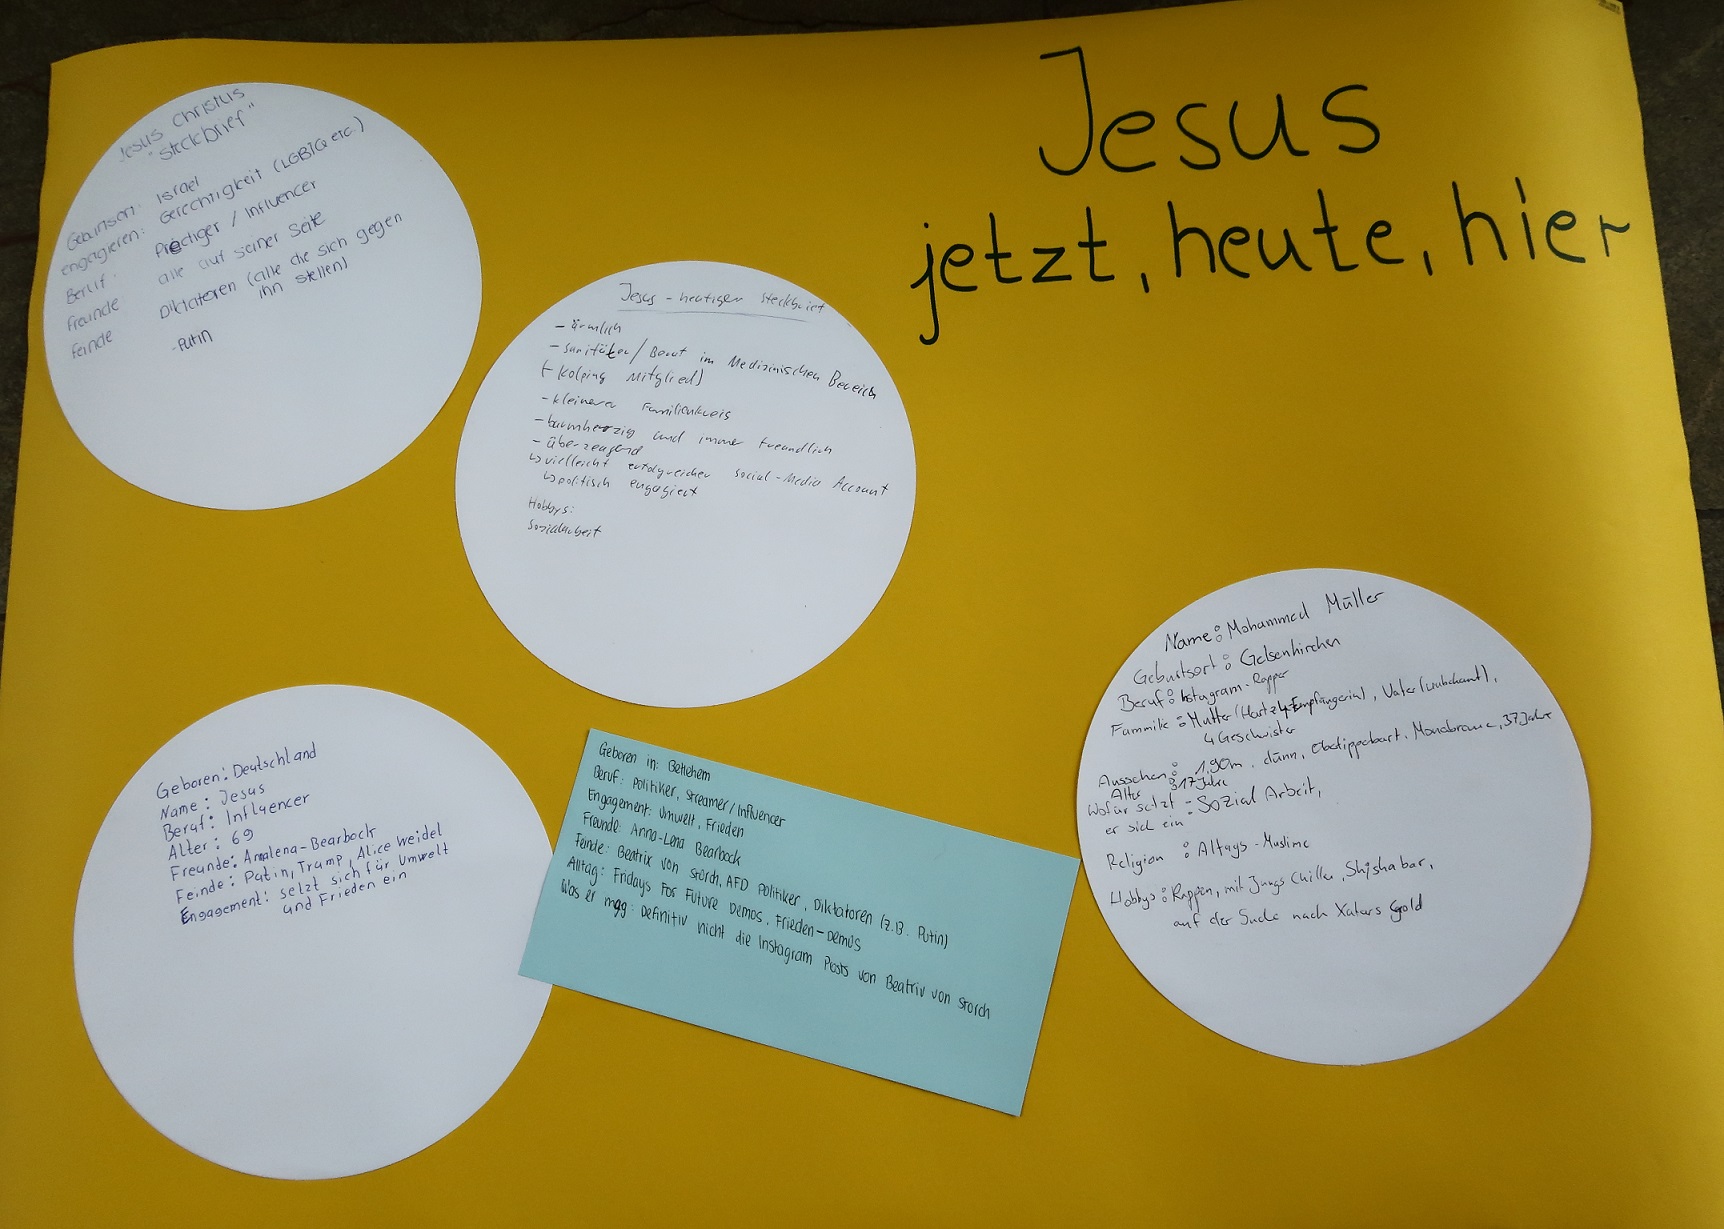 Jesus
jetzt, heute, hier
Jesus Christus
"Steckbrief"
Geboren: Israel
engagieren: Gerechtigkeit (LGBTQ etc.)
Beruf: Prediger / Influencer
Freunde alle auf seiner Seite
Feinde Diktatoren (alle die sich gegen
ihn stellen)
-Putin
Jesus - heutiger Steckbrief
- ärmlich
- Sanitäter / Beruf im Medizinischen Bereich
(- Kolping Mitglied)
- kleinerer Familienkreis
- barmherzig und immer freundlich
- überzeugend
↳ vielleicht erfolgreicher Social-Media Account
↳ politisch engagiert
Hobbys:
Sozialarbeit
Geboren: Deutschland
Name: Jesus
Beruf: Influencer
Alter: 69
Freunde: Annalena-Bearbock
Feinde: Putin, Trump, Alice Weidel
Engagement: setzt sich für Umwelt
und Frieden ein
Geboren in: Betlehem
Beruf: Politiker, Streamer/Influencer
Engagement: Umwelt, Frieden
Freunde: Anna-Lena Bearbock
Feinde: Beatrix von Storch, AFD Politiker, Diktatoren (z.B. Putin)
Alltag: Fridays For Future Demos, Frieden-Demos
Was er mag: Definitiv nicht die Instagram Posts von Beatrix von Storch
Name: Mohammed Müller
Geburtsort: Gelsenkirchen
Beruf: Instagram-Rapper
Fammilie: Mutter (Hartz 4-Empfängerin), Vater (unbekannt),
4 Geschwister
Aussehen: 1,90m, dünn, Monobraue, 37 Jahre
Alter: 17 Jahre
Wofür setzt - Sozial Arbeit,
er sich ein
Religion: Alltags-Muslime
Hobbys: Rappen, mit Jungs Chillen, Shishabar,
auf der Suche nach Xatars Gold